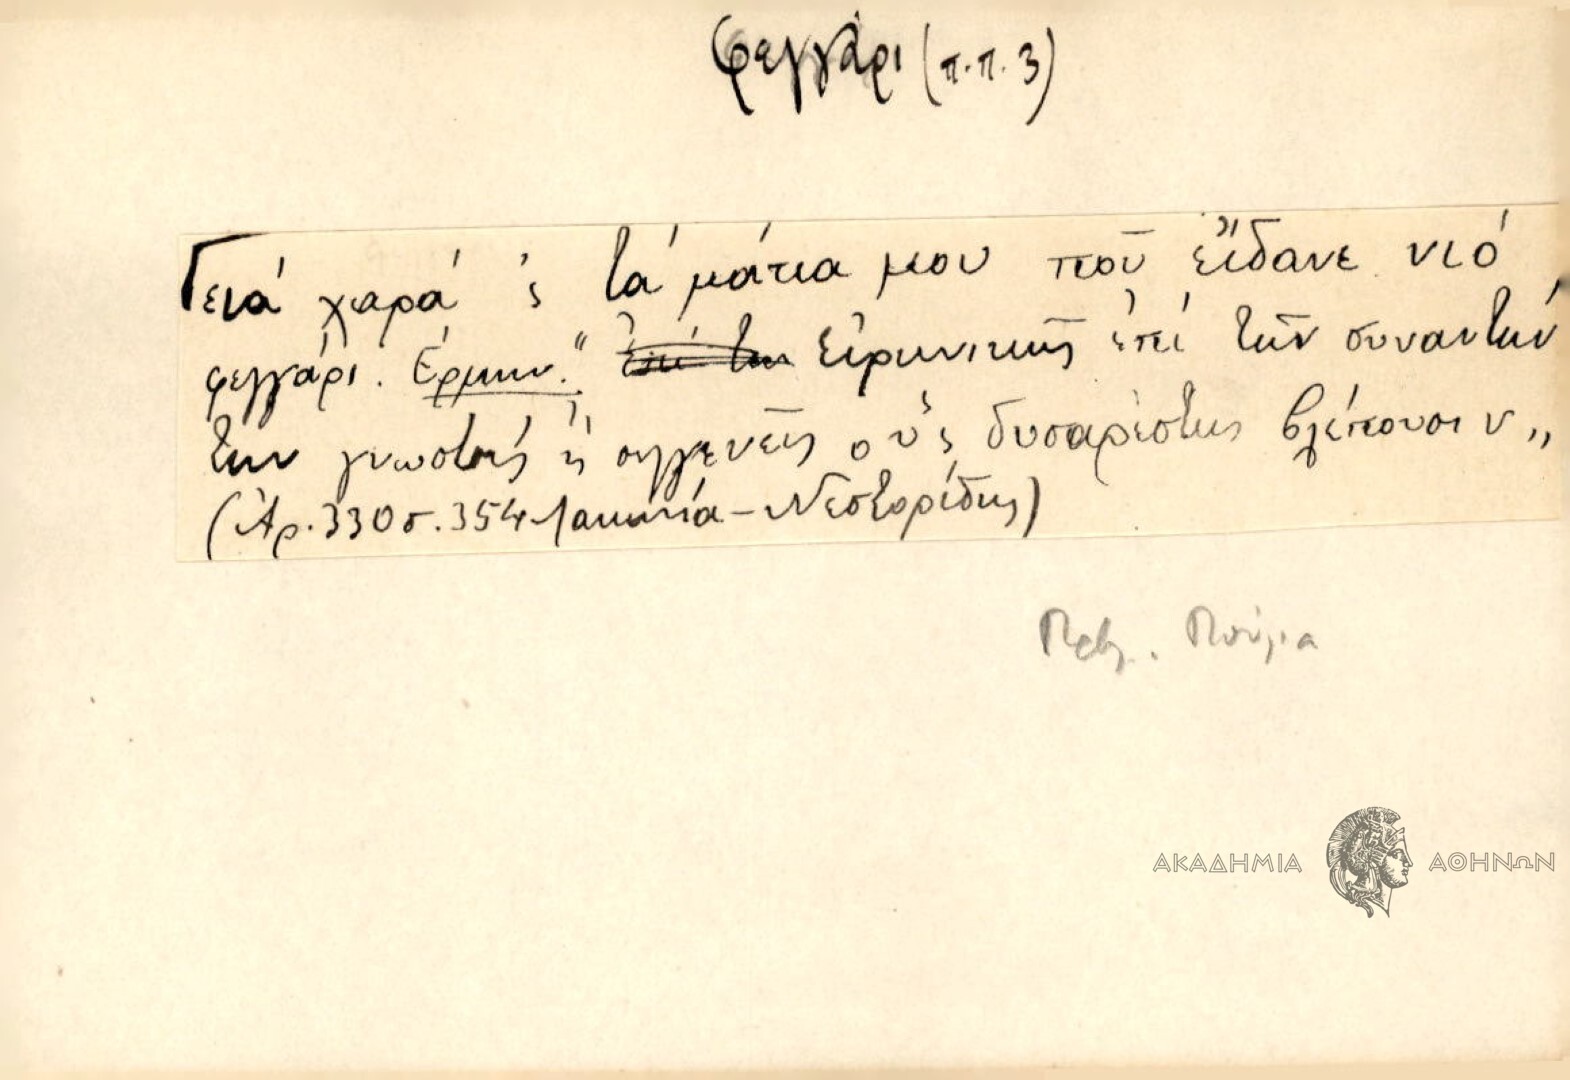 φεγγάρι (π.π. 3)
Γειά χαρά 'ς τά μάτια μου ποῦ εἴδανε νιό
φεγγάρι. Ἑρμην. " Εἰρωνικῶς ἐπί τῶν συναντών
των γνωστούς ἤ συγγενεῖς οὕς δυσαρέστως βλέπουσιν"
(Ἀρ. 330 σ. 354 Λακωνία - Νεστορίδης)
ΑΚΑΔΗΜΙΑ ΑΘΗΝΩΝ